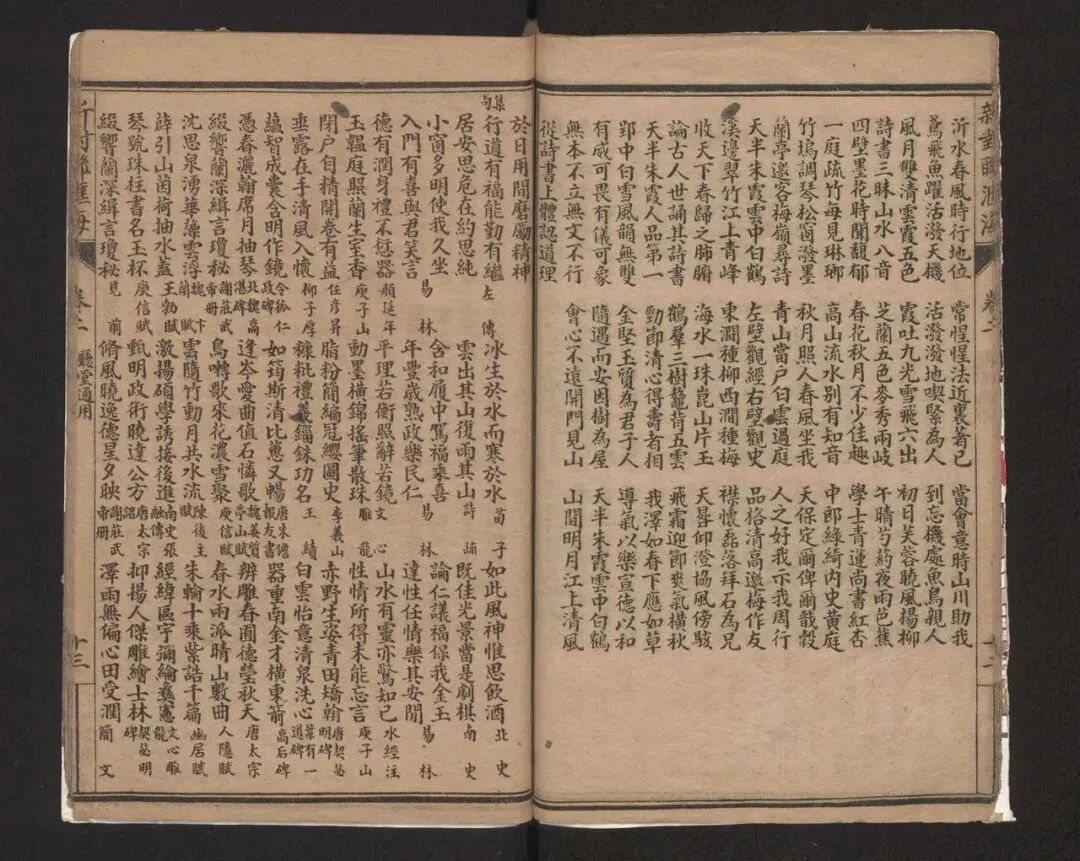 沂水春風時行地位 常惺惺法近裏著己 當會意時山川助我
鳶飛魚躍活潑天機 活潑潑地喫緊為人 到忘機處魚鳥親人
風月雙清雲霞五色 霞吐九光雪飛六出 初日芙蓉曉風楊柳
詩書三昧山水八音 芝蘭五色麥秀兩岐 午晴芍葯夜雨芭蕉
四壁墨花時聞馥郁 春花秋月不少佳趣 學士青蓮尚書紅杏
一庭疏竹每見琳瑯 高山流水別有知音 中郎綠綺內史黃庭
竹塢調琴松窗潑墨 秋月照人春風坐我 天保定爾俾爾戩穀
蘭亭邀客梅嶺尋詩 青山當戶白雲過庭 人之好我示我周行
天半朱霞雲中白鶴 左壁觀經右壁觀史 品格清高邀梅作友
溪邊翠竹江上青峰 東澗種柳西澗種梅 襟懷磊落拜石為兄
收天下春歸之肺腑 海水一珠崑山片玉 天晷仰澄協風傍駭
論古人世誦其詩書 鶴羣三樹鰲背五雲 飛霜迎節爽氣橫秋
天半朱霞人品第一 勁節清心得壽者相 我澤如春下應如草
郢中白雪風韻無雙 金堅玉質為君子人 導氣以樂宣德以和
有威可畏有儀可象 隨遇而安因樹為屋 天半朱霞雲中白鶴
無本不立無文不行 會心不遠開門見山 山間明月江上清風
從詩書上體認道理
於日用間磨勵精神
集句
行道有福能勤有繼 左傳 冰生於水而寒於水 荀子 如此風神惟思飲酒 北史
居安思危在約思純 雲出其山復雨其山 詩疏 既佳光景當是劇棋 南史
小窗多明使我久坐 易林 含和履中駕福乘喜 易林 論仁議福保我金玉 易林
入門有喜與君笑言 年豐歲熟政樂民仁 達性任情樂其安閒
德有潤身禮不愆器 顏延年 平理若衡照辭若鏡 文心 山水有靈亦驚知己 水經注
玉韞庭照蘭生室香 庾子山 動墨橫錦搖筆散珠 雕龍 性情所得未能忘言 庾子山
閉戶自精開卷有益 任彥昇 脂粉簡編冠纓圖史 李義山 赤野生姿青田矯翰 唐契苾明碑
垂露在手清風入懷 柳子厚 糠粃禮義錙銖功名 王績 白雲怡意清泉洗心 葉有一道碑
蘊智成囊含明作鏡 令狐仁政碑 如筠斯清比蕙又暢 唐朱儋報友書 器重南金才橫東箭 高后碑
憑春灑翰席月抽琴 北魏高湛碑 逢岑愛曲值石憐歌 魏姜質亭山賦 辨雕春囿德瑩秋天 唐太宗
綴響蘭深緝言瓊秘 謝莊武帝冊 鳥囀歌來花濃雪聚 庾信賦 春水雨派晴山數曲 人隱賦
沈思泉湧華藻雲浮 魏卞蘭賦 雲隨竹動月共水流 陳後主賦 朱輪十乘紫誥千篇 幽居賦
薜引山茵荷抽水蓋 王勃賦 激揚碩學誘接後進 南史張融傳 經緯區宇彌綸彝憲 文心雕龍
琴號珠柱書名玉杯 庾信賦 甄明政術曉達公方 唐太宗詔 抑揚人傑雕繪士林 契苾明碑
綴響蘭深緝言瓊秘 見前 脩風曉逸德星夕映 謝莊武帝冊 澤雨無偏心田受潤 簡文
卷二 廳堂通用 十三